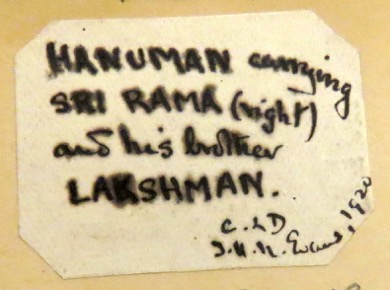 HANUMAN carrying
SRI RAMA (right)
and his brother
LAKSHMAN.
Evans, 1920